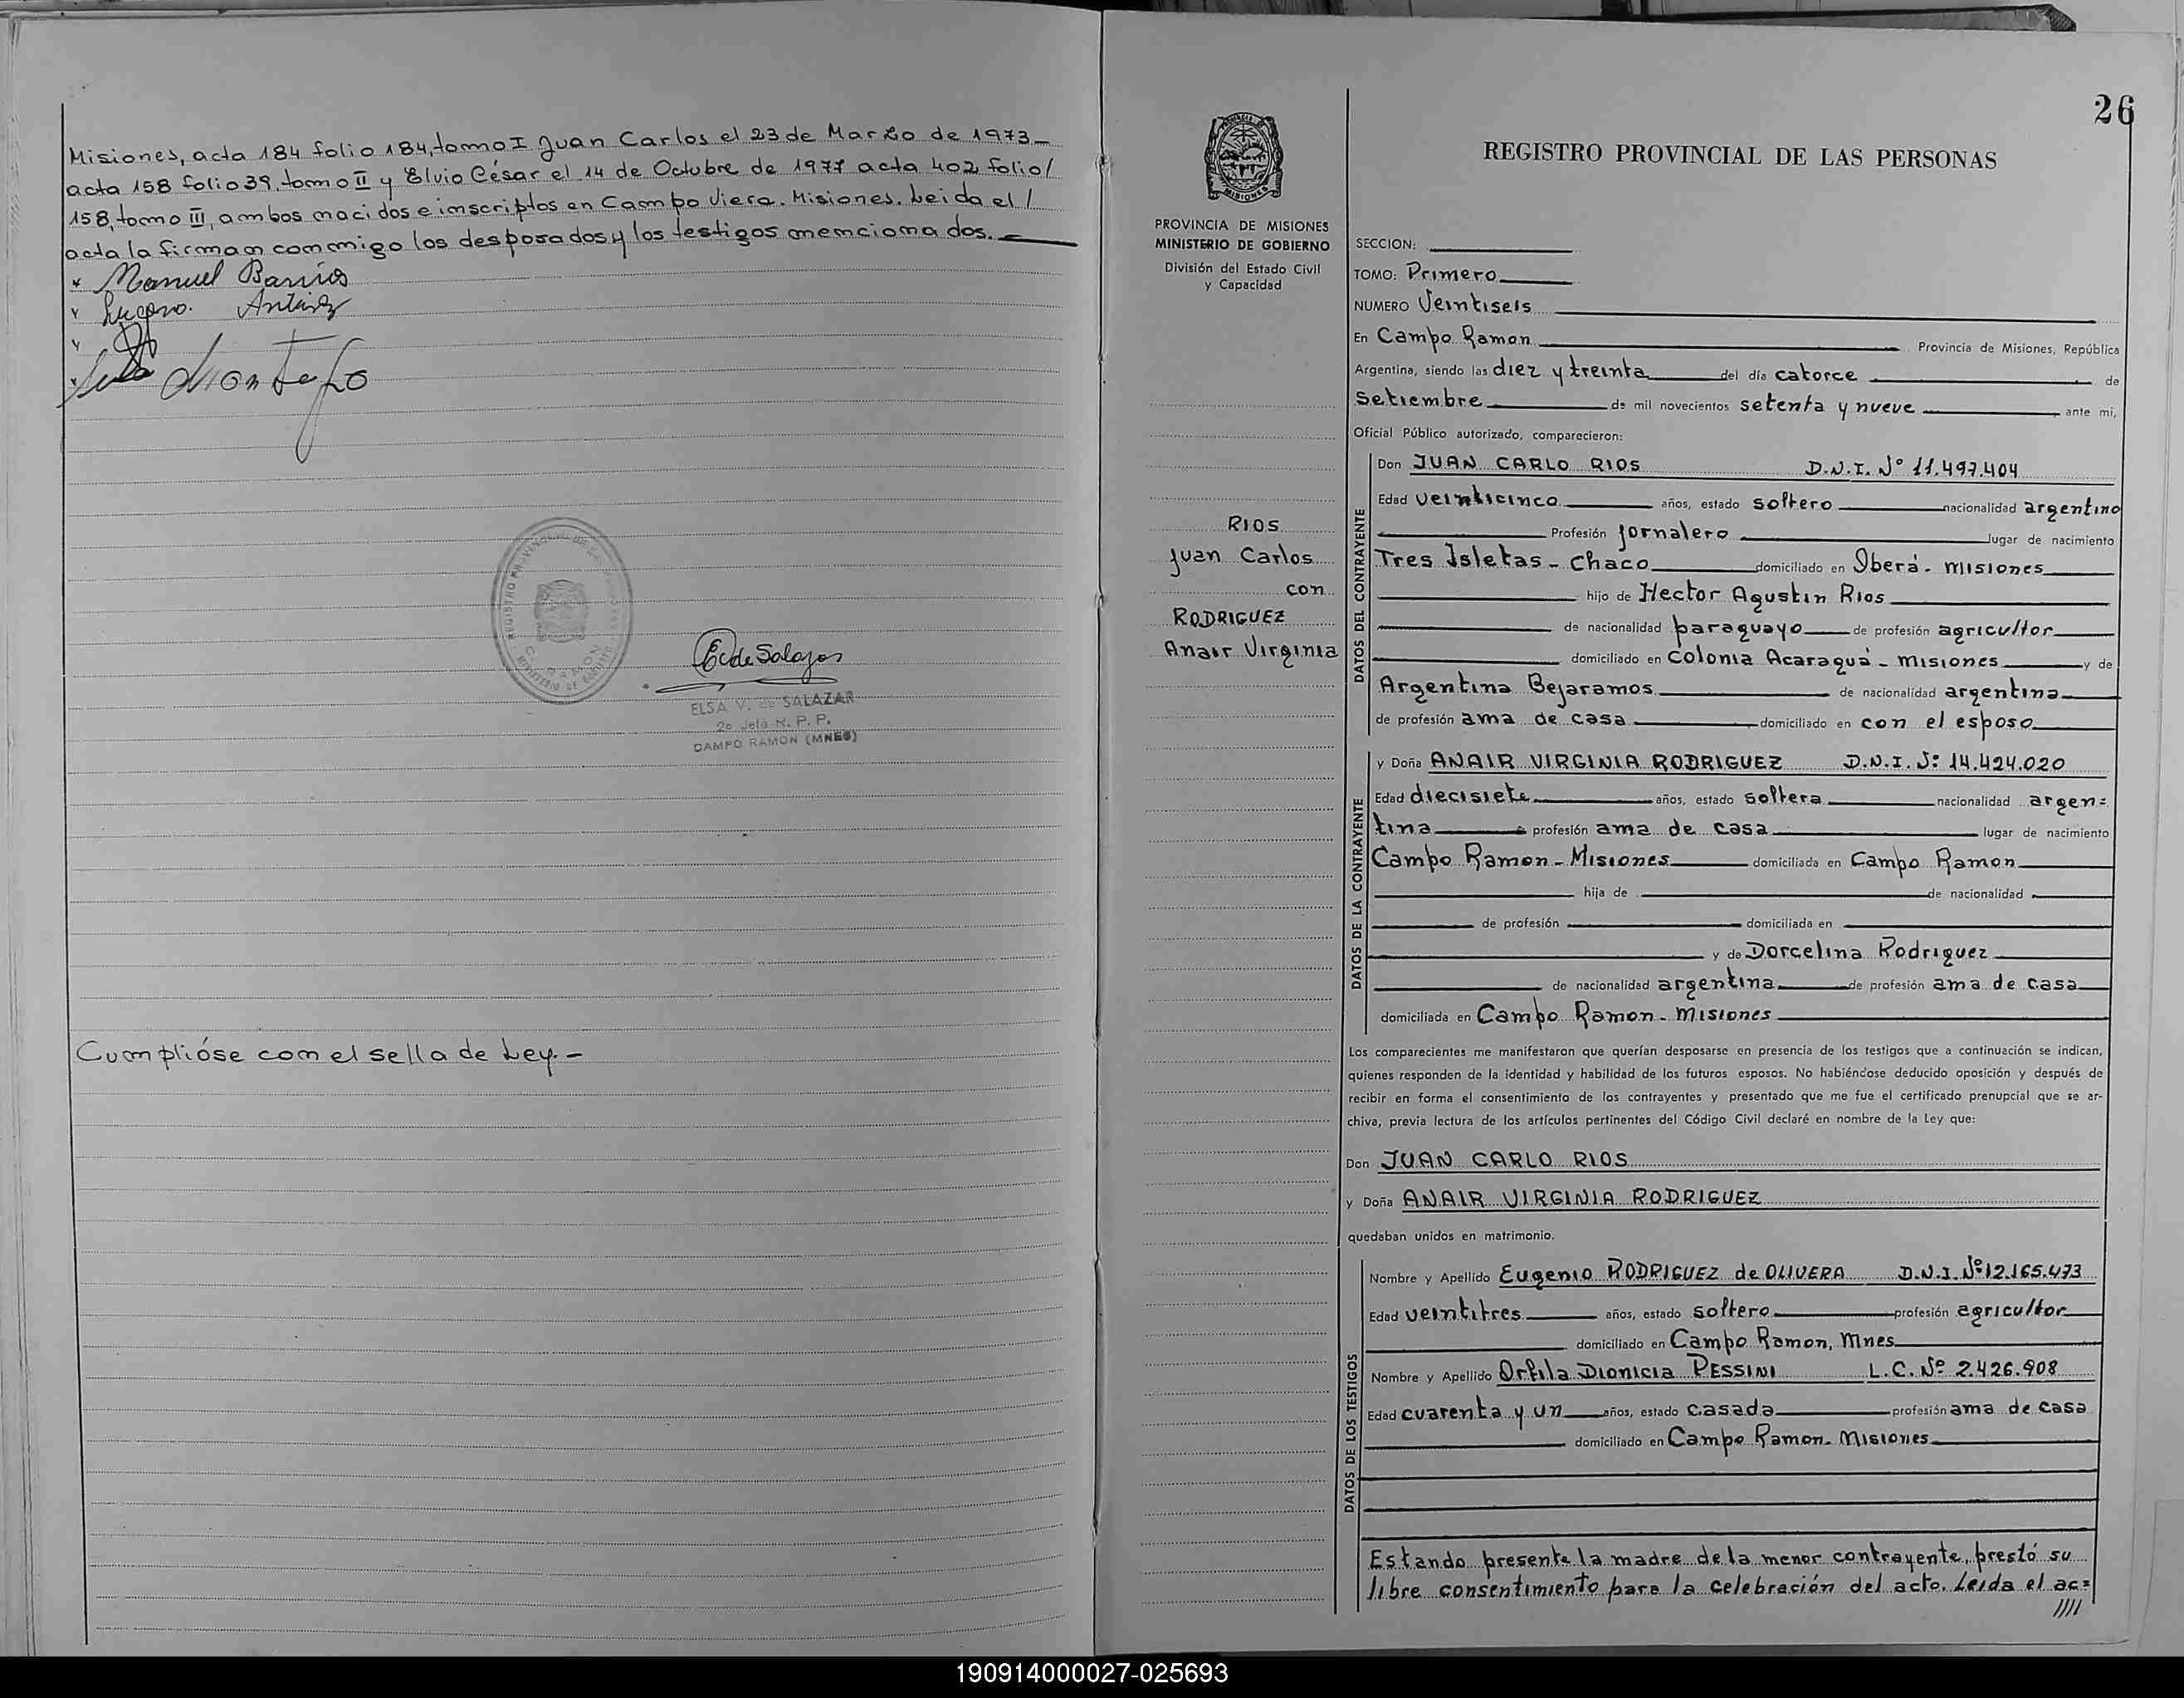 Misiones, acta 184 folio 184, tomo I Juan Carlos el 23 de Marzo de 1973 -
acta 158 folio 39, tomo II y Elvio César el 14 de Octubre de 1977 acta 402 folio/
158, tomo III, ambos nacidos e inscriptos en Campo Viera. Misiones. Leida el /
acta la firman conmigo los desposados y los testigos mencionados.
x Manuel Barrios
Antúnez
REGISTRO PROVINCIAL DE LAS PERSONAS
C. RAMON
MINISTERIO DE GOBIERNO
E. de Salazar
ELSA V. de SALAZAR
2a Jefa R. P. P.
CAMPO RAMON (MNES)
Cumplióse con el sella de Ley. -
26
PROVINCIA DE MISIONES
REGISTRO PROVINCIAL DE LAS PERSONAS
PROVINCIA DE MISIONES
MINISTERIO DE GOBIERNO
División del Estado Civil
y Capacidad
RIOS
Juan Carlos
con
RODRIGUEZ
Anair Virginia
SECCION:
TOMO: Primero
NUMERO Veintiseis
En Campo Ramon Provincia de Misiones, República
Argentina, siendo las diez y treinta del día catorce de
Setiembre de mil novecientos setenta y nueve ante mi,
Oficial Público autorizado, comparecieron:
DATOS DEL CONTRAYENTE
Don JUAN CARLO RIOS D.N.I. Nº 11.497.404
Edad veinticinco años, estado soltero nacionalidad argentino
Profesión jornalero lugar de nacimiento
Tres Isletas - Chaco domiciliado en Iberá - misiones
hijo de Hector Agustin Rios
de nacionalidad paraguayo de profesión agricultor
domiciliado en Colonia Acaraguá - misiones y de
Argentina Bejaramos de nacionalidad argentina
de profesión ama de casa domiciliado en con el esposo
DATOS DE LA CONTRAYENTE
y Doña ANAIR VIRGINIA RODRIGUEZ D.N.I. Nº 14.424.020
Edad diecisiete años, estado soltera nacionalidad argen=
tina profesión ama de casa lugar de nacimiento
Campo Ramon - Misiones domiciliada en Campo Ramon
hija de de nacionalidad
de profesión domiciliada en
y de Dorcelina Rodriguez
de nacionalidad argentina de profesión ama de casa
domiciliada en Campo Ramon - misiones
Los comparecientes me manifestaron que querían desposarse en presencia de los testigos que a continuación se indican,
quienes responden de la identidad y habilidad de los futuros esposos. No habiéndose deducido oposición y después de
recibir en forma el consentimiento de los contrayentes y presentado que me fue el certificado prenupcial que se ar-
chiva, previa lectura de los artículos pertinentes del Código Civil declaré en nombre de la Ley que:
Don JUAN CARLO RIOS
y Doña ANAIR VIRGINIA RODRIGUEZ
quedaban unidos en matrimonio.
DATOS DE LOS TESTIGOS
Nombre y Apellido Eugenio RODRIGUEZ de OLIVERA D.N.I. Nº 12.165.473
Edad veintitres años, estado soltero profesión agricultor
domiciliado en Campo Ramon, Mnes
Nombre y Apellido Orfila Dionicia PESSINI L.C. Nº 2.426.908
Edad cuarenta y un años, estado casada profesión ama de casa
domiciliado en Campo Ramon - Misiones
Estando presente la madre de la menor contrayente, prestó su
libre consentimiento para la celebración del acto. Leida el ac=
////
190914000027-025693